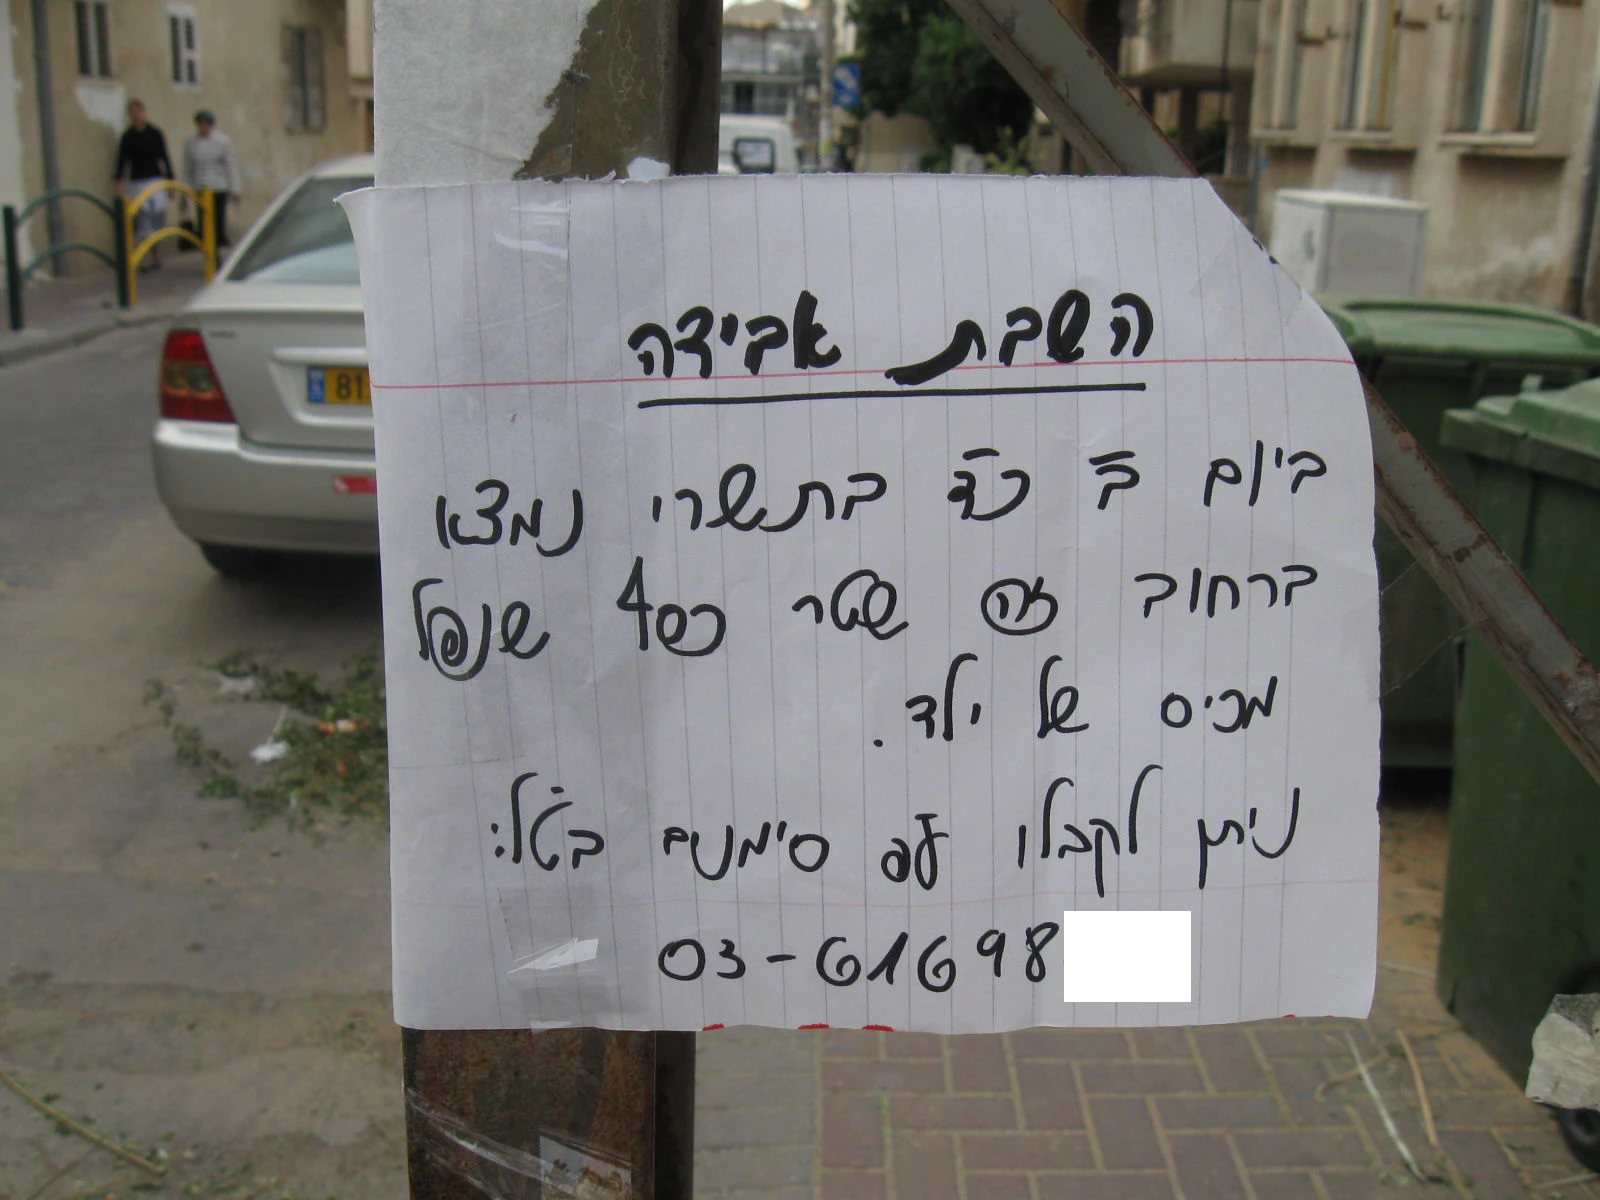 השבת אבידה
ביום ב̄ כ̄ד בתשרי נמצא
ברחוב זה שטר כסף שנפל
מכיס של ילד.
ניתן לקבלו עפ סימנים בטל:
03-61698
81